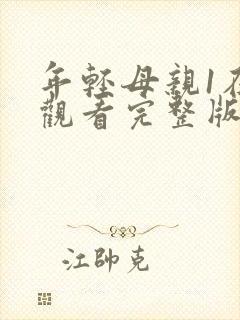 年輕母親1在
觀看完整版
江帥克